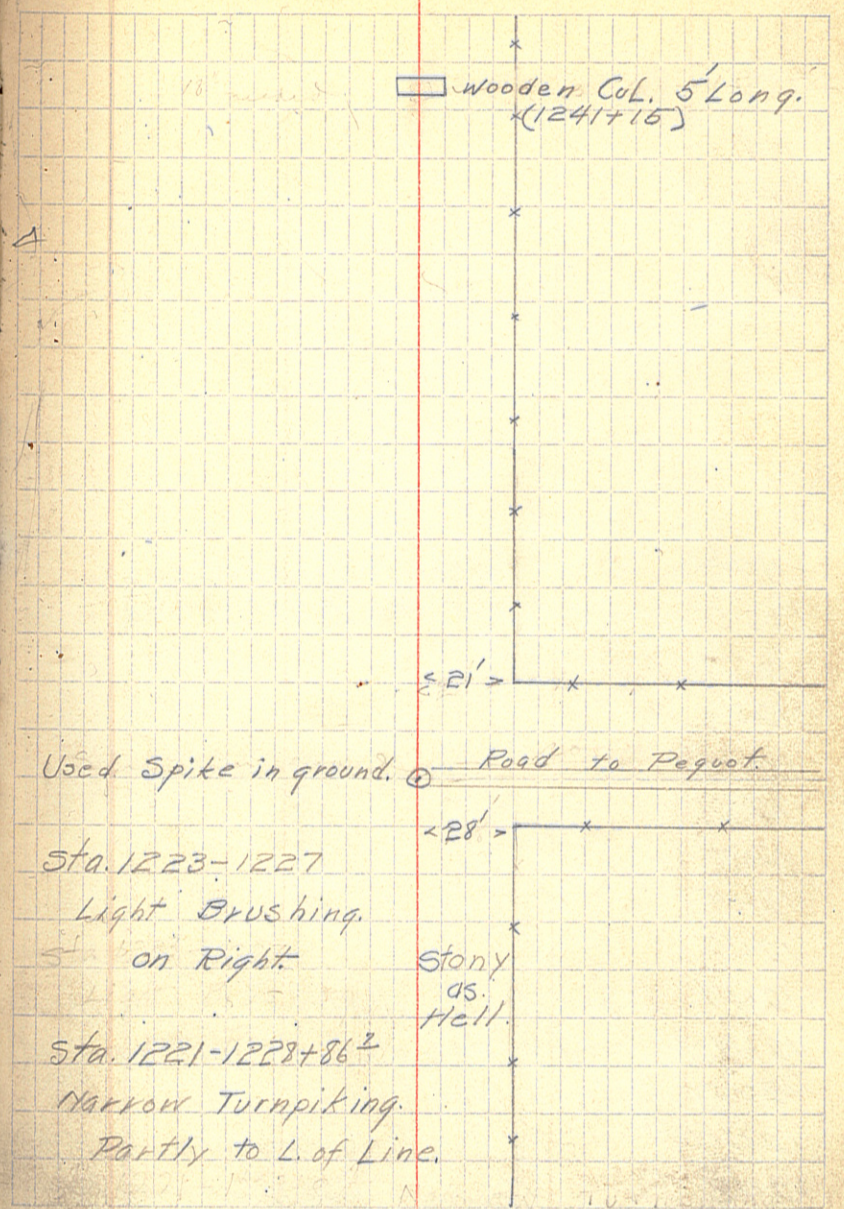 Wooden Cul. 5' Long.
(1241+15)
<21'>
Used Spike in ground.
Road to Pequot.
<28'>
Sta. 1223-1227
Light Brushing.
on Right.
Stony
as
Hell.
Sta. 1221-1228+86²
Narrow Turnpiking.
Partly to L. of Line.